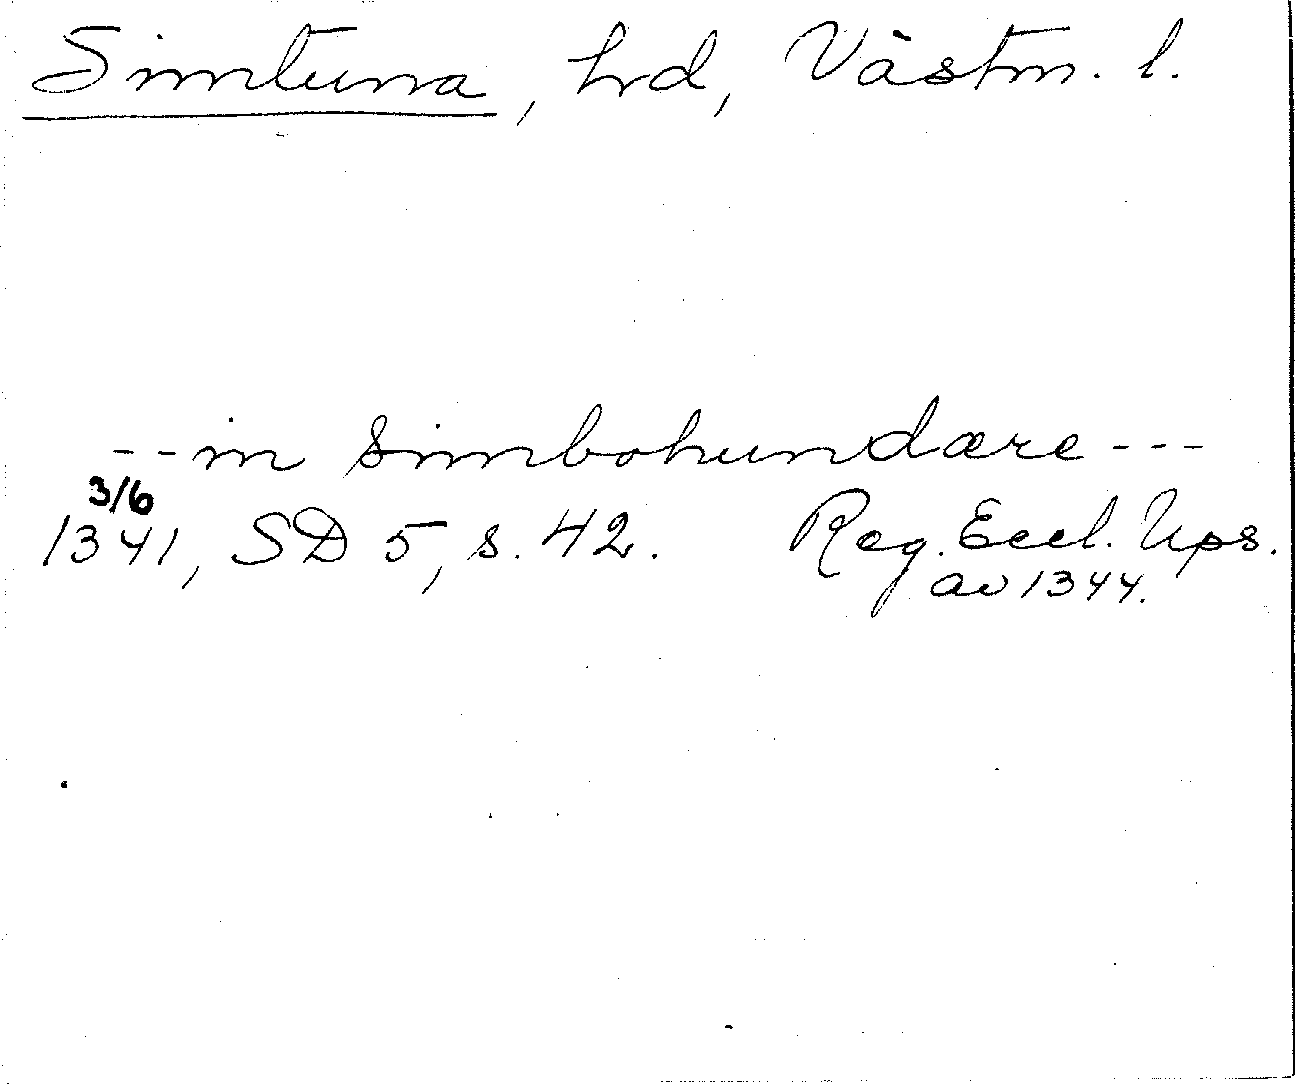 Simtuna, hd, Västm. l.
-- in simbohundære ---
3/6
1341, SD 5, s. 42. Reg. Eccl. Ups.
av 1344.